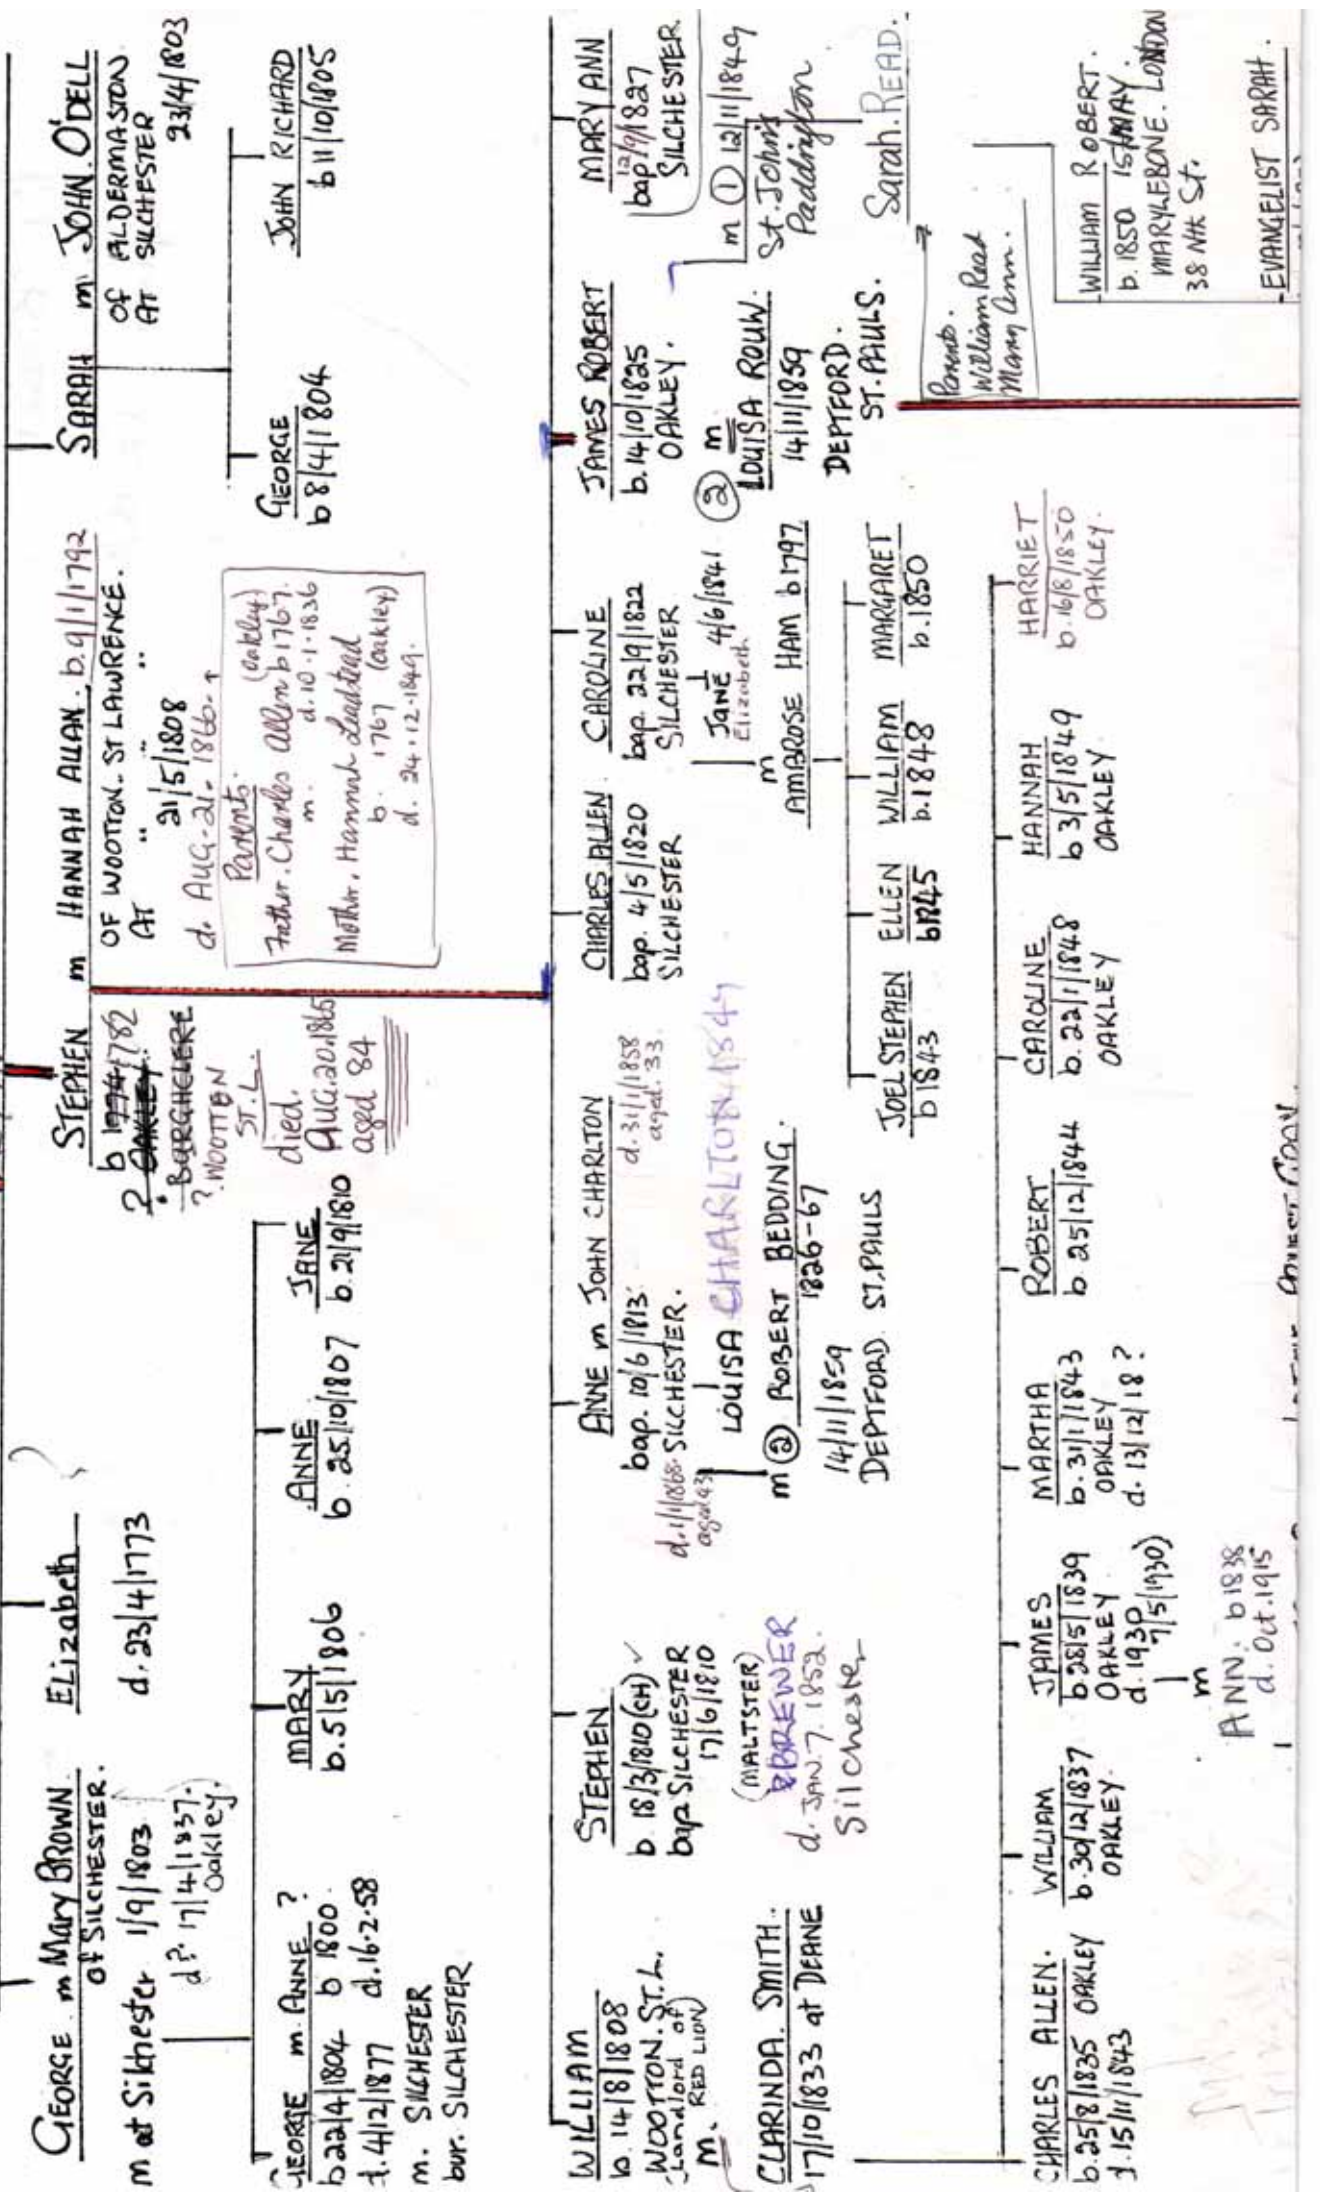 GEORGE. m Mary BROWN
OF SILCHESTER.
m at Silchester 1/9/1803
d?. 17/4/1837.
Oakley.
ELizabeth
?
d. 23/4/1773
STEPHEN m HANNAH ALLAN. b. 9/1/1792
b 1774 1782
? OAKLEY.
? BURGHCLERE
? WOOTTEN
ST. L.
died.
AUG. 20. 1865
aged 84
OF WOOTTON. ST LAWRENCE.
AT " " "
21/5/1808
d. AUG-21. 1860.
Parents.
(oakley)
Father. Charles Allen b 1767.
m. d. 10.1.1836
Mother. Hannah
b. 1767 (oakley)
d. 24.12.1849.
SARAH m JOHN. O'DELL
OF ALDERMASTON
AT SILCHESTER
23/4/1803
GEORGE
b 8/4/1804
JOHN RICHARD
b 11/10/1805
GEORGE m. ANNE ?
b 22/4/1804 b 1800.
d. 4/2/1877 d. 16.2.58
m. SILCHESTER
bur. SILCHESTER
MARY
b. 5/5/1806
ANNE
b. 25/10/1807
JANE
b. 21/9/1810
WILLIAM
b. 14/8/1808
WOOTTON. ST. L.
(Landlord of
RED LION)
m.
CLARINDA. SMITH.
17/10/1833 at DEANE
STEPHEN
b. 18/3/1810 (CH) ✓
bap SILCHESTER
17/6/1810
(MALTSTER)
BREWER
d. JAN. 7. 1852.
Silchester
ANNE m JOHN CHARLTON
bap. 10/6/1813.
SILCHESTER.
d. 1/1/1868.
d. 31/1/1858
aged. 33.
LOUISA CHARLTON 1844
m ② ROBERT BEDDING.
1826-67
14/11/1859
DEPTFORD. ST. PAULS
CHARLES. ALLEN
bap. 4/5/1820
SILCHESTER
CAROLINE
bap. 22/9/1822
SILCHESTER
JANE 4/6/1841
Elizabeth
m
AMBROSE HAM b 1797
JOEL STEPHEN
b 1843
ELLEN
b 1845
WILLIAM
b. 1848
MARGARET
b. 1850
JAMES ROBERT
b. 14/10/1825
OAKLEY.
② m
LOUISA ROUW.
14/11/1859
DEPTFORD.
ST. PAULS.
MARY ANN
12/9/1827
bap
SILCHESTER
m ① 12/11/1849
St. John's
Paddington
Sarah. READ.
Parents.
William Read
Mary Ann.
WILLIAM ROBERT.
b. 1850 15/MAY.
MARYLEBONE. LONDON
38 Nth St.
EVANGELIST SARAH.
CHARLES ALLEN.
b. 25/8/1835 OAKLEY
d. 15/11/1843
WILLIAM
b. 30/12/1837
OAKLEY.
JAMES
b. 28/5/1839
OAKLEY
d. 1930
7/5/1930)
m
ANN. b 1838
d. Oct. 1915
MARTHA
b. 31/1/1843
OAKLEY
d. 13/12/18?
ROBERT
b. 25/12/1844
CAROLINE
b. 22/1/1848
OAKLEY
HANNAH
b 3/5/1849
OAKLEY.
HARRIET
b. 16/8/1850
OAKLEY.